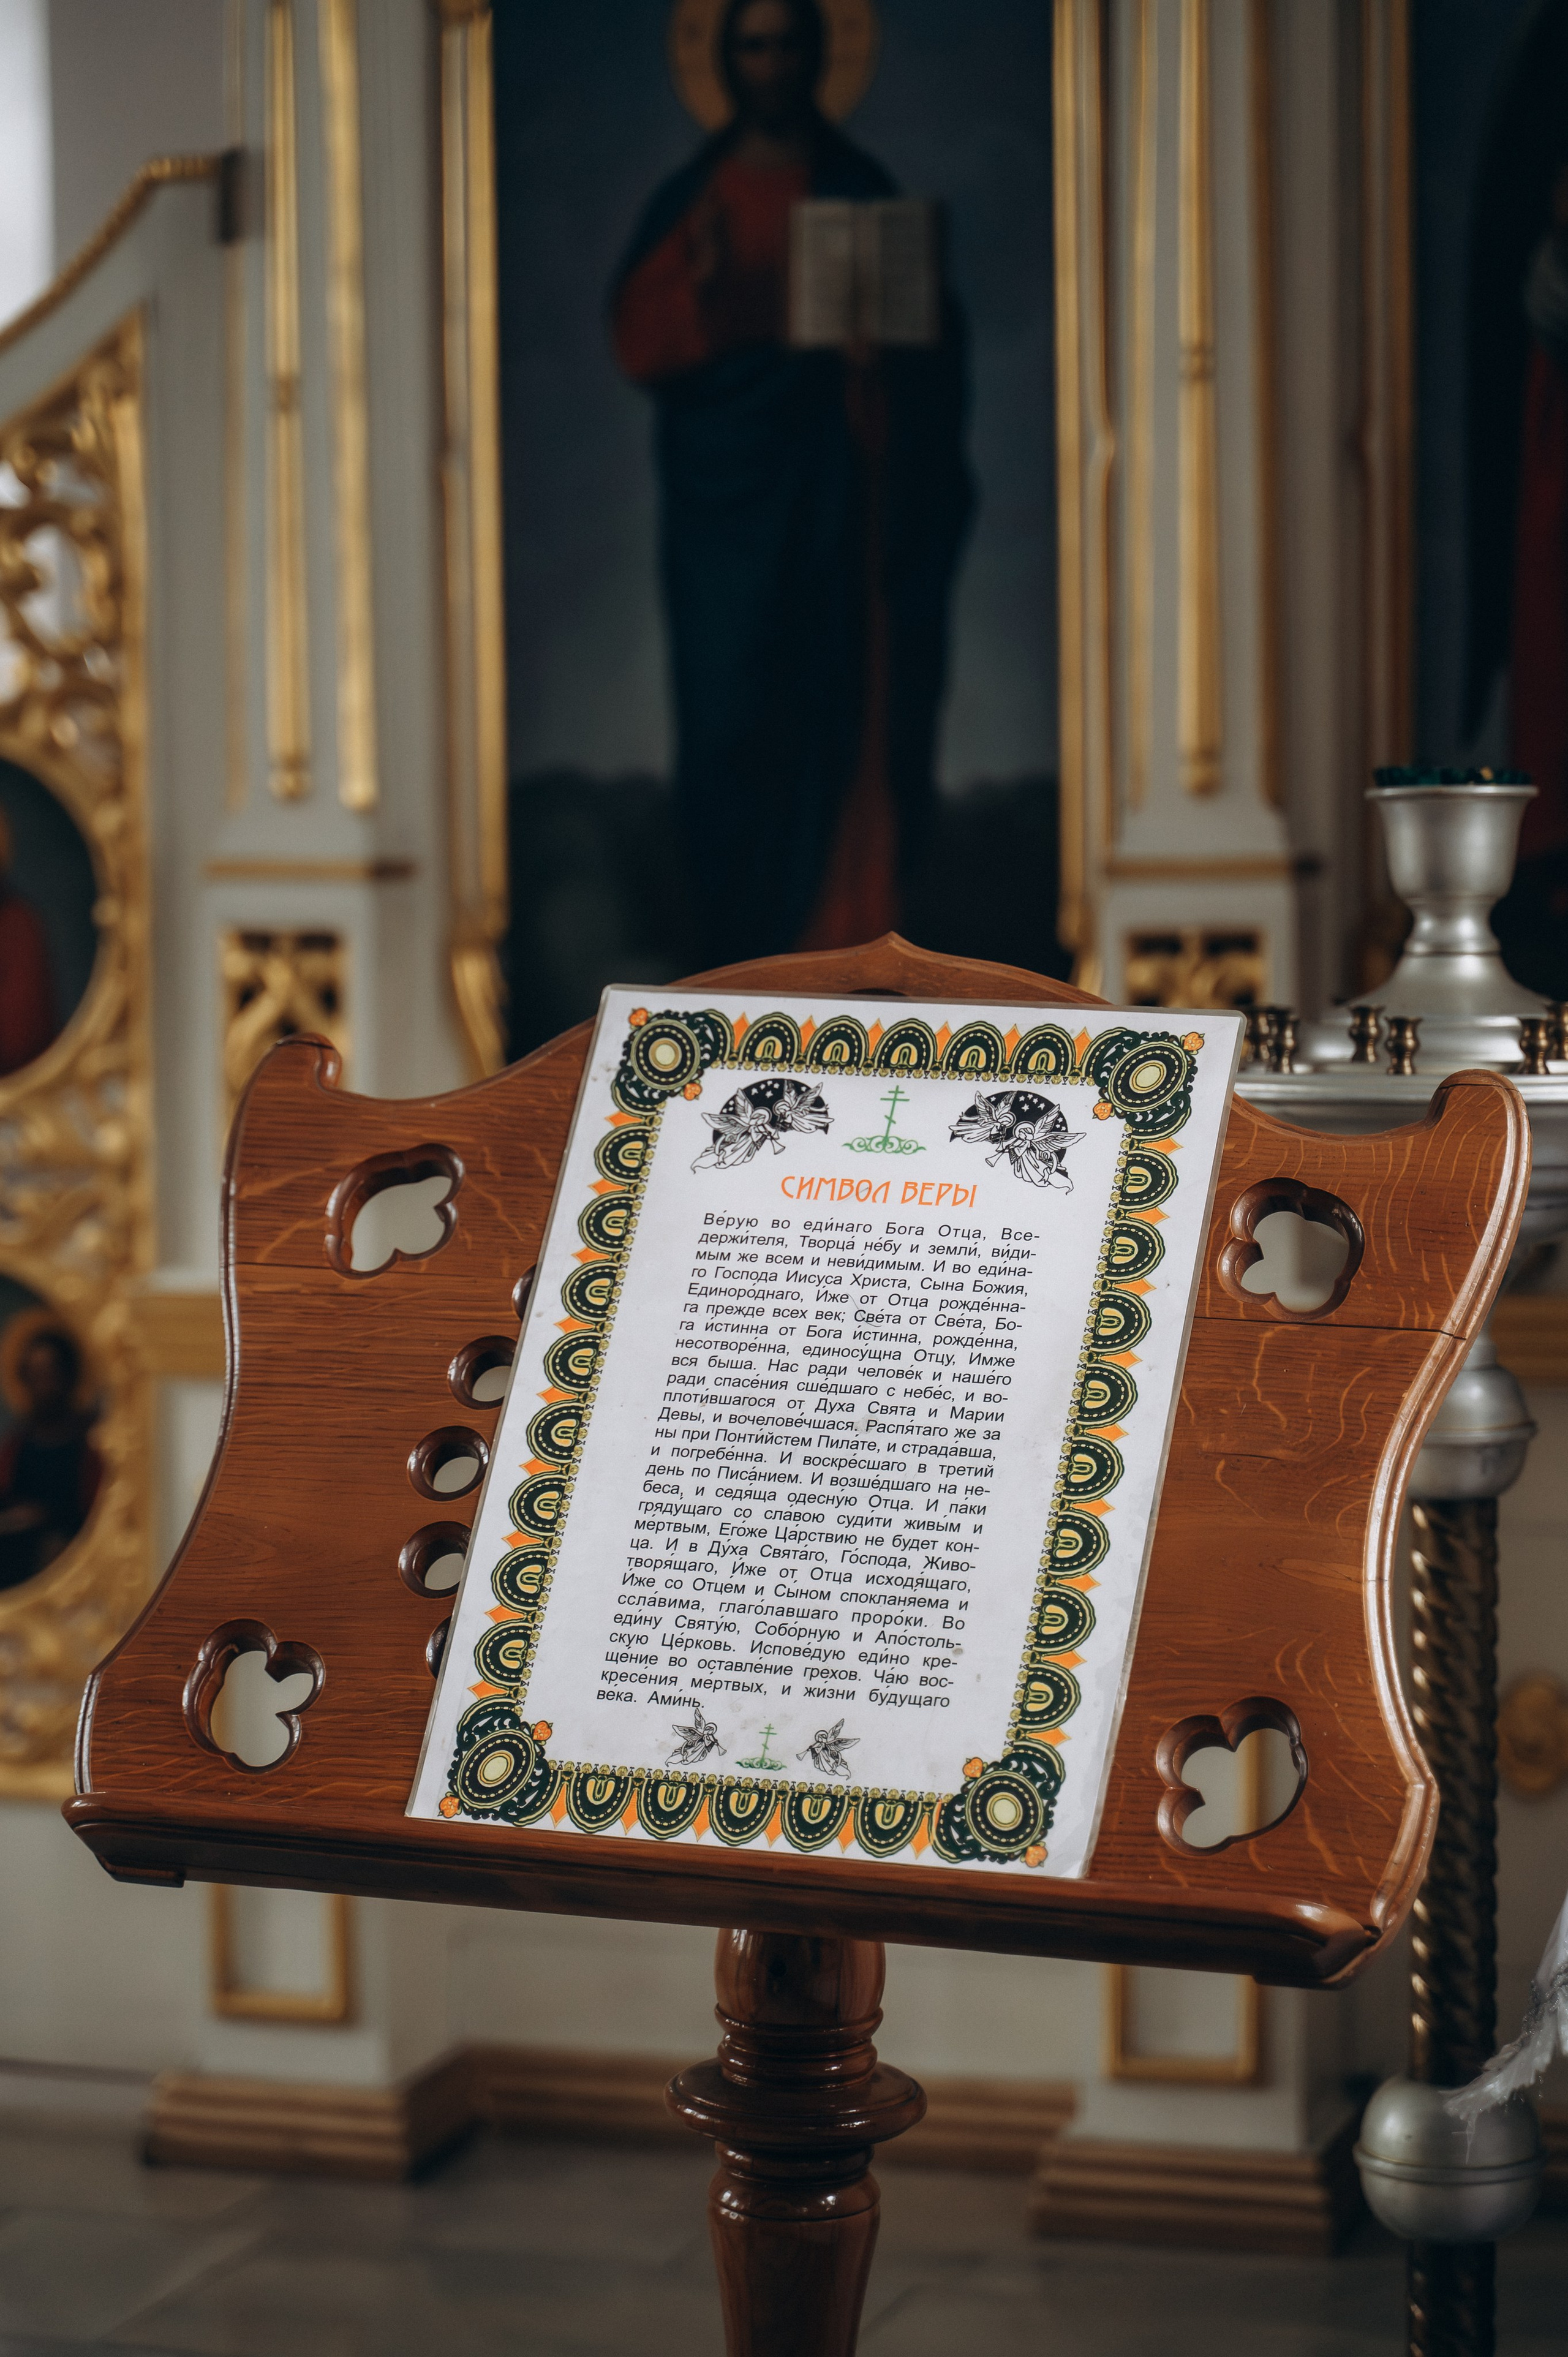 СИМВОЛ ВЕРЫ
Ве́рую во еди́наго Бога Отца, Все-
держи́теля, Творца́ не́бу и земли́, ви́ди-
мым же всем и неви́димым. И во еди́на-
го Господа Иисуса Христа, Сына Божия,
Единоро́днаго, И́же от Отца рожде́нна-
га прежде всех век; Све́та от Све́та, Бо-
га и́стинна от Бога и́стинна, рожде́нна,
несотворе́нна, единосу́щна Отцу, Имже
вся быша. Нас ради челове́к и наше́го
ради спасе́ния сше́дшаго с небе́с, и во-
плоти́вшагося от Духа Свята и Марии
Девы, и вочелове́чшася. Распя́таго же за
ны при Понти́йстем Пила́те, и страда́вша,
и погребе́нна. И воскре́сшаго в третий
день по Писа́нием. И возше́дшаго на не-
беса́, и седя́ща одесну́ю Отца. И па́ки
гряду́щаго со сла́вою суди́ти живы́м и
ме́ртвым, Его́же Ца́рствию не будет кон-
ца. И в Ду́ха Свята́го, Го́спода, Живо-
творя́щаго, И́же от Отца исходя́щаго,
И́же со Отце́м и Сы́ном спокланя́ема и
ссла́вима, глаго́лавшаго проро́ки. Во
еди́ну Святу́ю, Собо́рную и Апо́столь-
скую Це́рковь. Испове́дую еди́но кре-
ще́ние во оставле́ние грехов. Ча́ю вос-
кресе́ния ме́ртвых, и жи́зни бу́дущаго
ве́ка. Ами́нь.